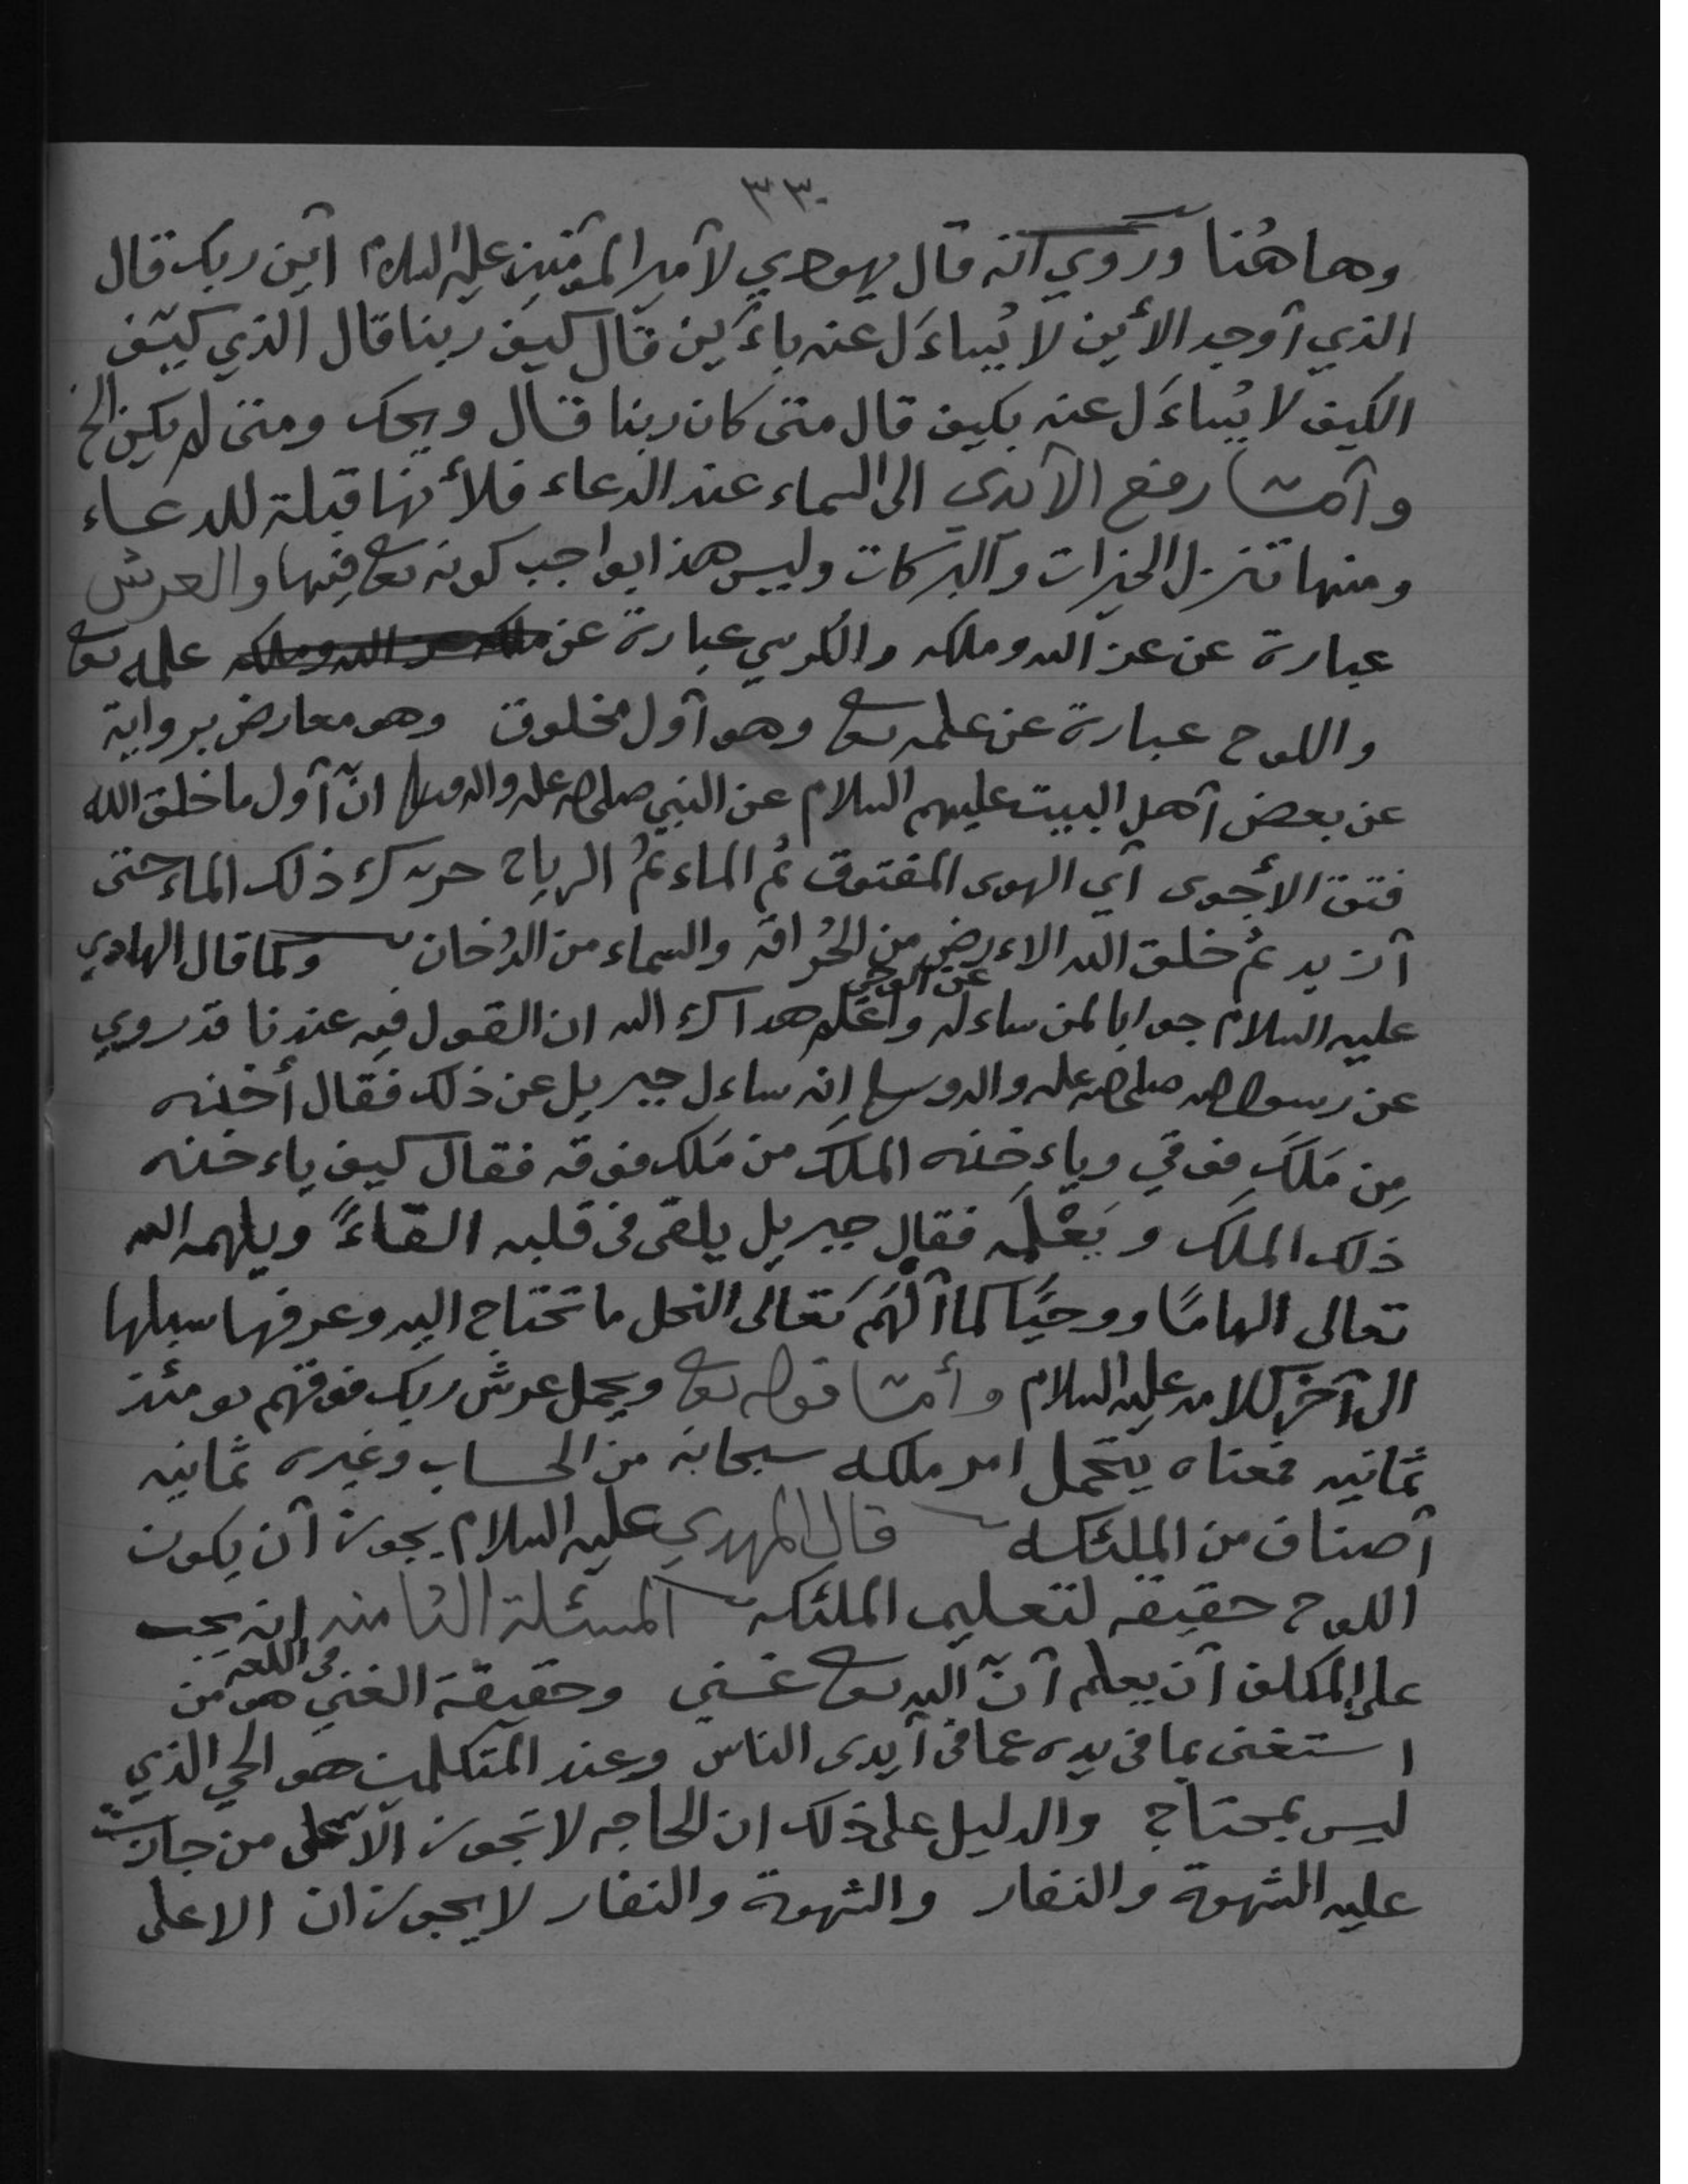 ٣٣٠
وهاهُنا وروي آنه قال يهودي لآمير المؤمنين عليه السلام آين ربك قال
الذي آوجد الأين لا يُساءَل عنه باءَين قال كيف ربنا قال الذي كيّف
الكيف لا يُساءَل عنه بكيف قال متى كان ربنا قال ويحك ومتى لم يكن الخ
وآمّا رفع الآيدي الى السماء عند الدعاء فلأنها قبلة للدعاء
ومنها تنزل الخيرات والبركات وليس هذا بواجب كونه تعا فيها والعرش
عبارة عن عز الله وملكه والكرسي عبارة عن علمه تعا
واللوح عبارة عن علمه تعا وهو آول مخلوق وهو معارض برواية
عن بعض آهل البيت عليهم السلام عن النبي صلى الله عليه واله وسلم انّ آول ما خلق الله
فتق الأجوى آي الهوى المفتوق ثم الماء ثمُ الرياح حرّكت ذلك الماء حتى
آزبد ثمُ خلق الله الاءرض من الحُراقه والسماء من الدُخان وكما قال الهادي
عليه السلام جوابا لمن ساءله عن الوحي واعلم هداك الله ان القول فيه عندنا قد روي
عن رسول الله صلى الله عليه واله وسلم إنه ساءل جبريل عن ذلك فقال أخذه
مِن مَلَكٍ فوقي وياءخذه الملَك من مَلَك فوقه فقال كيف ياءخذه
ذلك الملَك ويَعْلمَه فقال جبريل يلقى في قلبه القاءً ويلهمه الله
تعالى الهامًا ووحيًا كما آلهَم تعالى النحل ما تحتاج اليه وعرفها سبلها
الى آخر كلامه عليه السلام وأمّا قوله تعا ويحمل عرش ربك فوقهم يومئذ
ثمانيه فمعناه يتحمل امر ملكه سبحانه من الحساب وغيره ثمانيه
آصناف من الملئكه قال المهدي عليه السلام يجوز آن يكون
اللوح حقيقه لتعليم الملئكه المسئلة الثامنه انه يجب
على المكلف آن يعلم آنّ الله تعا غني وحقيقة الغني في اللغه هو من
استغنى بما في يده عما في آيدى الناس وعند المتكلمين هو الحي الذي
ليس بمحتاج والدليل على ذلك ان الحاجه لا تجوز الّا على من جازت
عليه الشهوة والنفار والشهوة والنفار لا يجوزان الا على